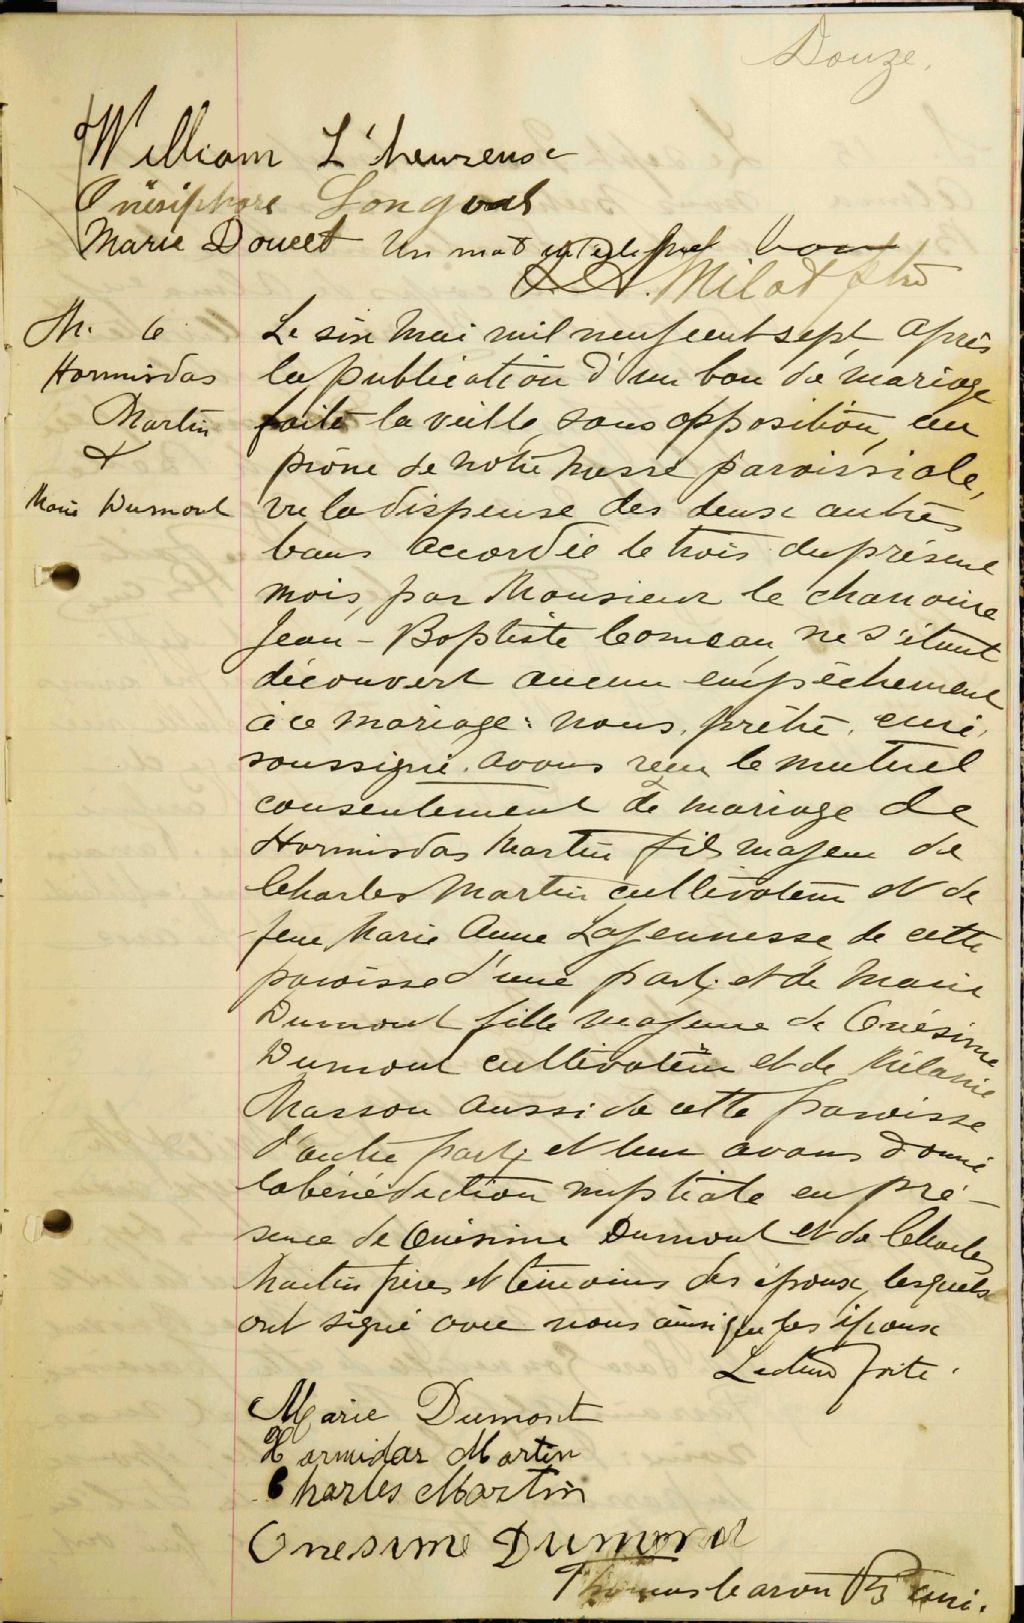 Douze.
William L'heureux
Onésiphore Longval
Marie Doucet Un mot bon
Milot ptre
M. 6
Hormisdas
Martin
&
Marie Dumont
Le six Mai mil neuf cent sept, après
la publication d'un ban de mariage
faite la veille, sans opposition, au
prône de notre messe paroissiale,
vu la dispense des deux autres
bans accordée le trois du présent
mois, par Monsieur le chanoine
Jean-Baptiste Comeau, ne s'étant
découvert aucun empêchement
à ce mariage: nous, prêtre, curé,
soussigné, avons reçu le mutuel
consentement de mariage de
Hormisdas Martin fils majeur de
Charles Martin cultivateur et de
feue Marie Anne Lajeunesse de cette
paroisse d'une part; et de Marie
Dumont fille majeure de Onésime
Dumont cultivateur et de Mélanie
Masson aussi de cette paroisse
d'autre part; et leur avons donné
la bénédiction nuptiale en pré-
sence de Onésime Dumont et de Charles
Martin pères et témoins des époux, lesquels
ont signé avec nous ainsi que les époux
Lecture faite.
Marie Dumont
Hormidas Martin
Charles Martin
Onesime Dumond
Thomas Caron Ptre curé.